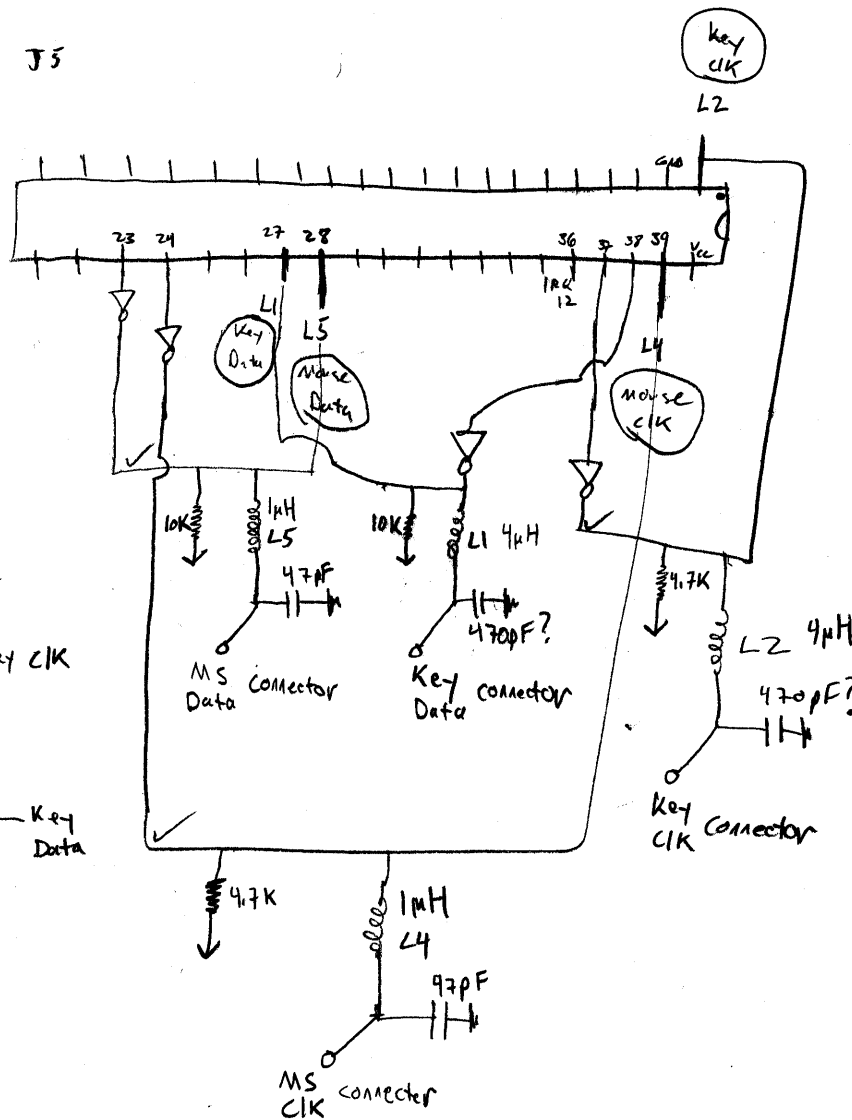 J5
Key
ClK
L2
GND
23
24
27
28
36
37
38
39
Vcc
IRQ
12
L1
Key
Data
L5
Mouse
Data
L4
Mouse
ClK
10K
1μH
L5
47pF
10K
L1 4μH
470pF?
4.7K
L2 4μH
470pF?
MS
Data connector
Key
Data connector
Key
ClK connector
ey ClK
Key
Data
4.7K
1μH
L4
47pF
MS
ClK connector